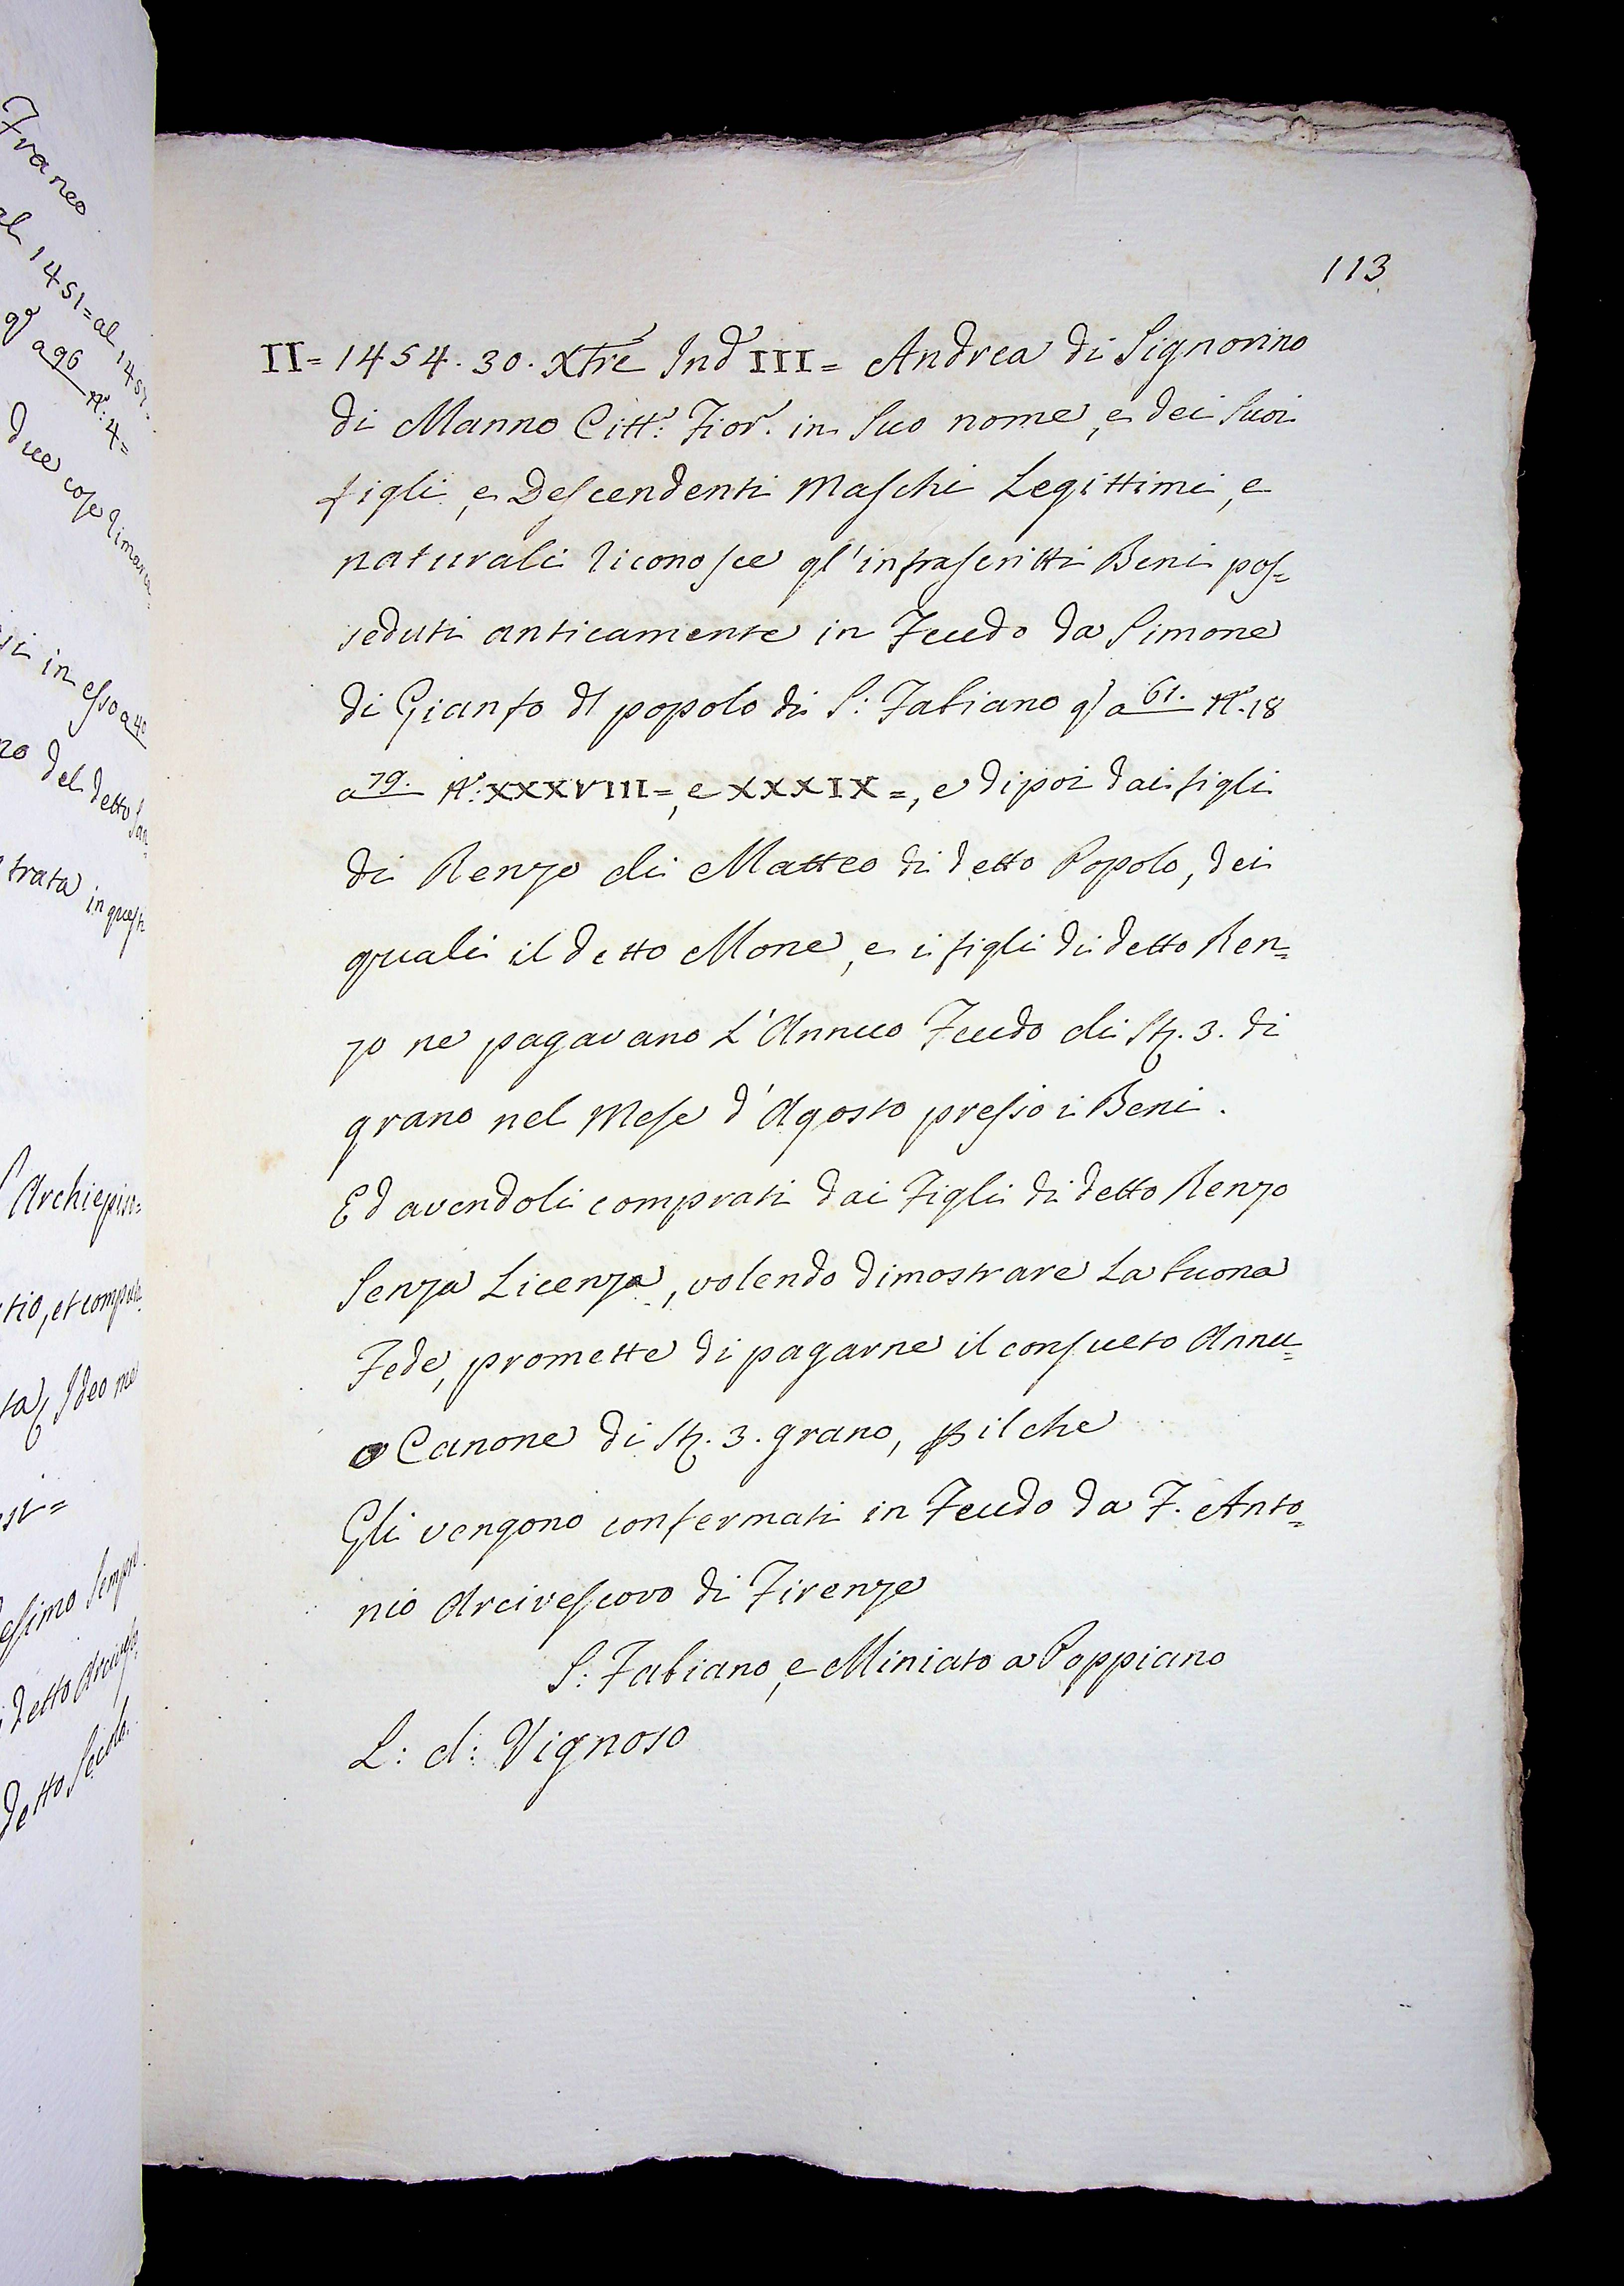 Franco
al 1451 = al 1451.
a 96 N. 4 =
due cose
si in esso a 40
no del detto
trata in
Archiepisc=
tio, et
Ideo me
detto
detto
113
II = 1454. 30. Xbre Ind III = Andrea di Signorino
di Manno Citt: Fior. in Suo nome, e dei Suoi
figli, e Descendenti Maschi Legittimi, e
naturali riconosce gl'infrascritti Beni pos=
seduti anticamente in Feudo da Simone
di Gianfo dl popolo di S: Fabiano q a 61. N. 18
a 79. N: XXXVIII =, e XXXIX =, e dipoi dai figli
di Renzo di Matteo di detto Popolo, dei
quali il detto Mone, e i figli di detto Ren=
zo ne pagavano L'Annuo Feudo di St. 3. di
grano nel Mese d'Agosto presso i Beni.
Ed avendoli comprati dai Figli di detto Renzo
Senza Licenza, volendo dimostrare La buona
Fede, promette di pagarne il consueto Annu=
o Canone di St. 3. grano, p il che
Gli vengono confermati in Feudo da F. Anto=
nio Arcivescovo di Firenze
S: Fabiano, e Miniato a Poppiano
L: d: Vignoso